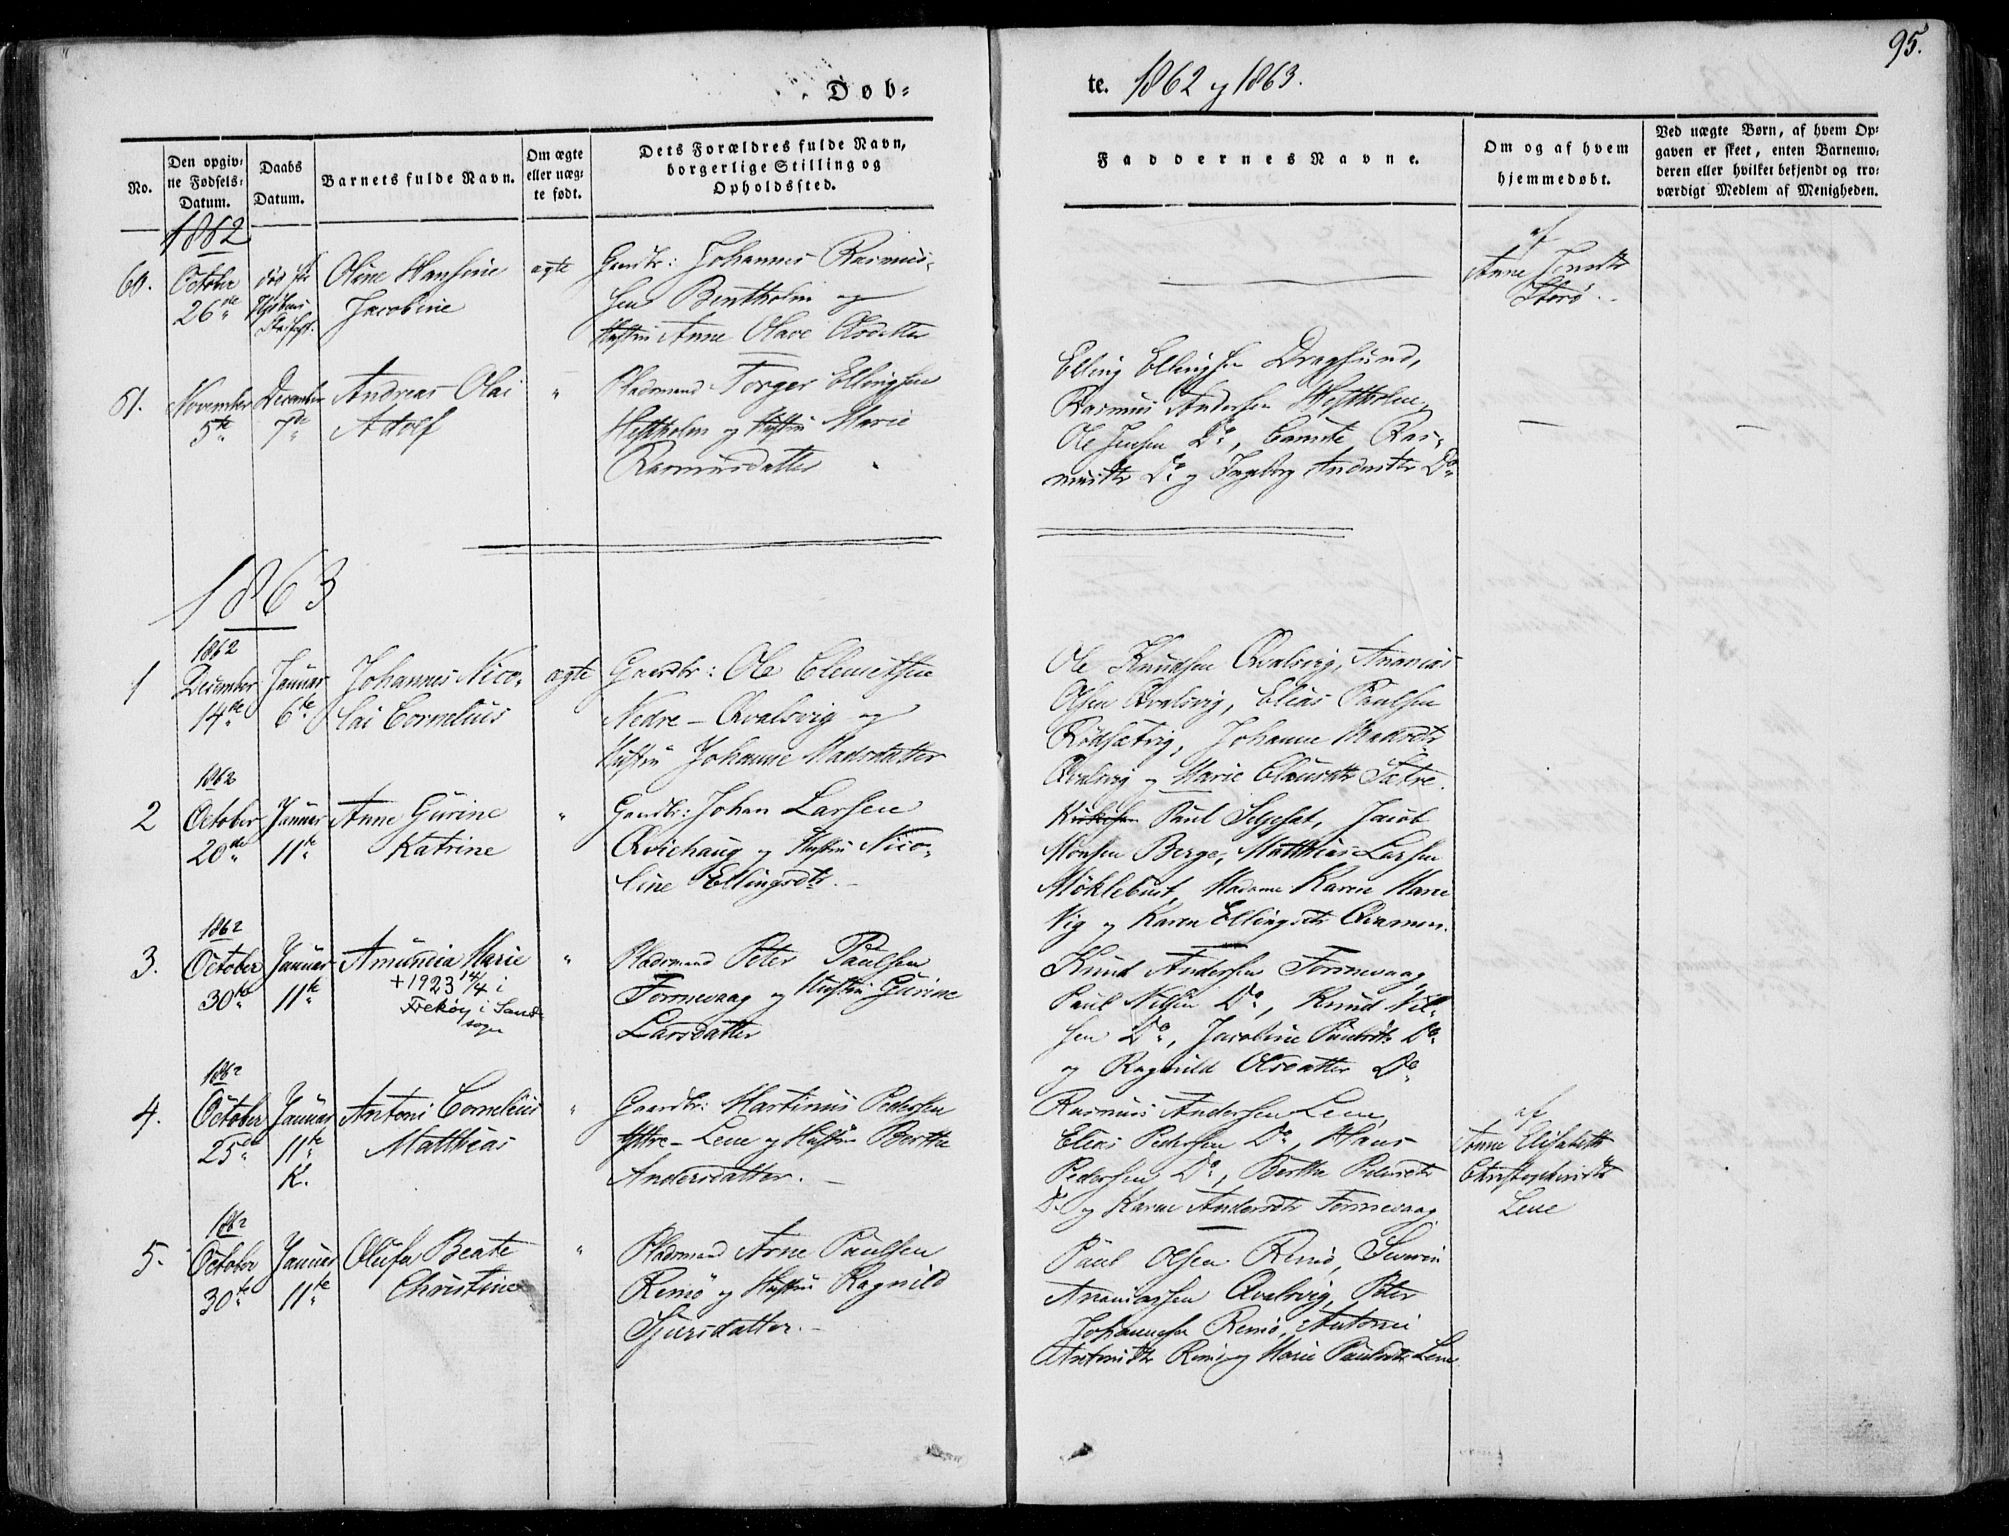 95.
Døb=
te. 1862 og 1863.
No.
Den opgiv=
ne Fødsels=
Datum.
Daabs
Datum.
Barnets fulde Navn.
Om ægte
eller næg=
te født.
Dets Forældres fulde Navn,
borgerlige Stilling og
Opholdssted.
Faddernes Navne.
Om og af hvem
hjemmedøbt.
Ved nægte Børn, af hvem Op=
gaven er skeet, enten Barnemo=
deren eller hvilket bekjendt og tro=
værdigt Medlem af Menigheden.
1862
60.
October
26de
død
Oline Hansine
Jacobine
ægte
Gaardbr: Johannes Rasmus=
sen og
Hustru Anne Olave Olsdatter
af
Anne
Storø.
61.
November
5te
December
7de
Andreas Olai
Adolf
"
Pladsmand Torger Ellingsen
Hestholm og Hustru Marie
Rasmusdatter
Elling Ellingsen Dragsund,
Rasmus Andersen Hestholm,
Ole Jensen Do, Ras=
musdtr Do og Ingeborg Andersdtr Do
—
—
1863
1
1862
December
14de
Januar
6te
Johannes Nico=
lai Cornelius
ægte
Gaardbr: Ole Clemetsen
Nedre-Qvalsvig og
Hustru Johanne Madsdatter
Ole Knudsen Qvalsvig, Ananias
Olsen Qvalsvig, Elias Paulsen
Johanne Madsdtr
Qvalsvig og Marie Clausdtr Sætre.
2
1862
October
20de
Januar
11te
Anne Gurine
Katrine
"
Gaardbr: Johan Larsen
Qvichaug og Hustru Nico=
line Ellingsdtr.
Paul Jacob
Monsen Berge, Matthias Larsen
Møklebust, Madame Karen Marie
Vig og Karen Ellingsdtr
3.
1862
October
30te
Januar
11te
Amunda Marie
+ 1923 14/4 i
Frekøy i Sand=
sogn
"
Pladsmand Peter Paulsen
Torvevaag og Hustru Gurine
Larsdatter
Knud Andersen Torvevaag,
Paul Nilsen Do, Knud Nil=
sen Do, Jacobine Paulsdtr Do
og Ragnild Olsdatter Do
4.
1862
October
25de
Januar
11te
K.
Antoni Cornelius
Matthias
"
Gaardbr: Martinus Pedersen
Ytre-Leine og Hustru Berthe
Andersdatter.
Rasmus Andersen Leine,
Elias Pedersen Do, Hans
Pedersen Do, Berthe Pedersdtr
Do og Karen Andersdtr Torvevaag
af
Anne Elisabeth
Christophersdtr
Leine
5.
1862
October
30te
Januar
11te
Olufa Beate
Christine
"
Pladsmand Arne Paulsen
Remø og Hustru Ragnild
Sjursdatter.
Paul Olsen Remø,
Ananiassen Qvalsvig, Peter
Johannessen Remø,
Remø og Marie Paulsdtr Leine